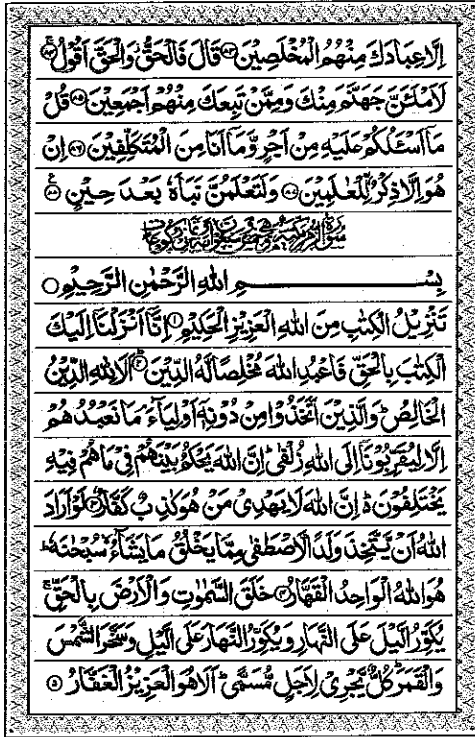 اِلَّا عِبَادَكَ مِنْهُمُ الْمُخْلَصِيْنَ ﴿۸۳﴾ قَالَ فَالْحَقُّ وَالْحَقَّ اَقُوْلُ ﴿۸۴﴾
لَاَمْلَـَٔنَّ جَهَنَّمَ مِنْكَ وَمِمَّنْ تَبِعَكَ مِنْهُمْ اَجْمَعِيْنَ ﴿۸۵﴾ قُلْ
مَاۤ اَسْـَٔلُكُمْ عَلَيْهِ مِنْ اَجْرٍ وَّمَاۤ اَنَا مِنَ الْمُتَكَلِّفِيْنَ ﴿۸۶﴾ اِنْ
هُوَ اِلَّا ذِكْرٌ لِّلْعٰلَمِيْنَ ﴿۸۷﴾ وَلَتَعْلَمُنَّ نَبَاَهٗ بَعْدَ حِيْنٍ ﴿۸۸﴾
سورة الزمر مكية
بِسْمِ اللهِ الرَّحْمٰنِ الرَّحِيْمِ
تَنْزِيْلُ الْكِتٰبِ مِنَ اللهِ الْعَزِيْزِ الْحَكِيْمِ ﴿۱﴾ اِنَّاۤ اَنْزَلْنَاۤ اِلَيْكَ
الْكِتٰبَ بِالْحَقِّ فَاعْبُدِ اللهَ مُخْلِصًا لَّهُ الدِّيْنَ ﴿۲﴾ اَلَا لِلهِ الدِّيْنُ
الْخَالِصُ ؕ وَالَّذِيْنَ اتَّخَذُوْا مِنْ دُوْنِهٖۤ اَوْلِيَآءَ ۘ مَا نَعْبُدُهُمْ
اِلَّا لِيُقَرِّبُوْنَاۤ اِلَى اللهِ زُلْفٰى ؕ اِنَّ اللهَ يَحْكُمُ بَيْنَهُمْ فِيْ مَا هُمْ فِيْهِ
يَخْتَلِفُوْنَ ؕ اِنَّ اللهَ لَا يَهْدِيْ مَنْ هُوَ كٰذِبٌ كَفَّارٌ ﴿۳﴾ لَوْ اَرَادَ
اللهُ اَنْ يَّتَّخِذَ وَلَدًا لَّاصْطَفٰى مِمَّا يَخْلُقُ مَا يَشَآءُ ۙ سُبْحٰنَهٗ ؕ
هُوَ اللهُ الْوَاحِدُ الْقَهَّارُ ﴿۴﴾ خَلَقَ السَّمٰوٰتِ وَالْاَرْضَ بِالْحَقِّ ۚ
يُكَوِّرُ الَّيْلَ عَلَى النَّهَارِ وَيُكَوِّرُ النَّهَارَ عَلَى الَّيْلِ وَسَخَّرَ الشَّمْسَ
وَالْقَمَرَ ؕ كُلٌّ يَّجْرِيْ لِاَجَلٍ مُّسَمًّى ؕ اَلَا هُوَ الْعَزِيْزُ الْغَفَّارُ ﴿۵﴾